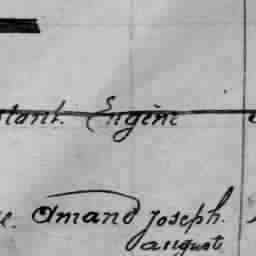 stant. Engène
e. Amand Joseph.
august